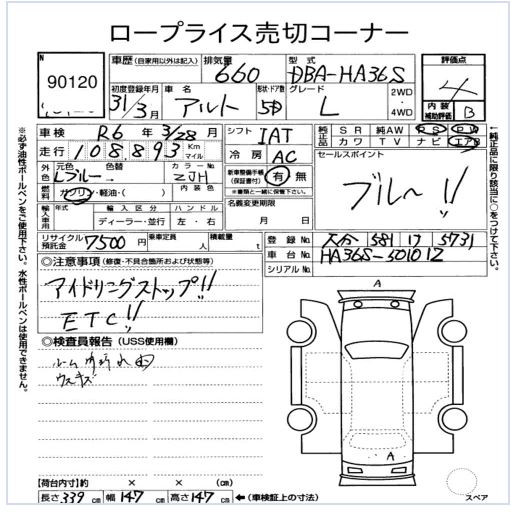 ロープライス売切コーナー
N
90120
車歴 (自家用以外は記入)
排気量
660
型式
DBA-HA36S
評価点
4
内装補助評価
B
初度登録年月
31/3月
車名
アルト
形状・ドア数
5D
グレード
L
2WD
・
4WD
車検
R6年3/28月
シフト
IAT
純正品
SR 純AW PS PW
カワ TV ナビ エアB
走行
108,893
Km
マイル
冷房
AC
セールスポイント
ブルー!!
外色
元色
Lブルー→
色替
カラーNo.
ZJH
新車整備手帳
(保証書付)
有・無
※書類と一緒に保管下さい。
燃料
ガソリン・軽油・( )
内装色
名義変更期限
月 日
輸入車用
年式
輸入区分
ハンドル
ディーラー・並行
左・右
リサイクル預託金
7500円
乗車定員
人
積載量
t
登録No.
大分 581 け 5731
車台No.
HA36S-501012
シリアルNo.
◎注意事項 (修復・不具合箇所および状態等)
アイドリングストップ!!
ETC!!
◎検査員報告 (USS使用欄)
A
A
【荷台内寸】約 × × (cm)
長さ 339 cm 幅 147 cm 高さ 147 cm ←(車検証上の寸法)
スペア
※必ず油性ボールペンをご使用下さい。水性ボールペンは使用できません。
←純正品に限り該当に○をつけて下さい。